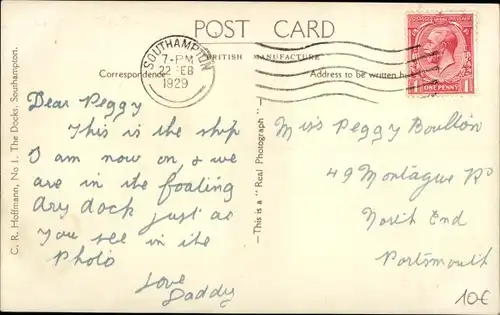 POST CARD
BRITISH MANUFACTURE
Correspondence
Address to be written
SOUTHAMPTON
7-PM
22 FEB
1929
ONE PENNY
1 1
Dear Peggy
This is the ship
I am now on, & we
are in the foating
dry dock just as
you see in the
Photo
Love
Daddy
Miss Peggy Boulton
49 Montague Rd
North End
Portsmouth
C. R. Hoffmann, No 1. The Docks, Southampton.
—This is a "Real Photograph"—
10€